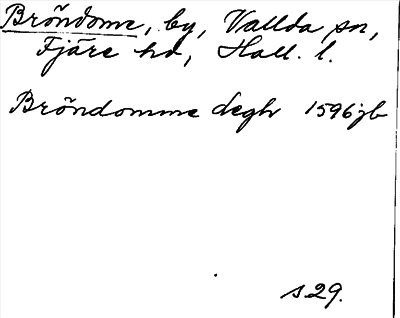 Bröndome, by, Vallda sn,
Fjäre hd, Hall. l.
Bröndomme degh 1596 jb
s 29.